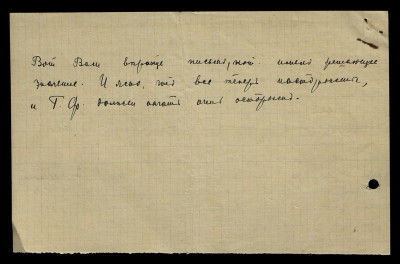 Вот Вам вкратце письмо, кот. имело решающее
значение. И ясно, что все теперь
и Т. Фр. должен начать очень осторожно.